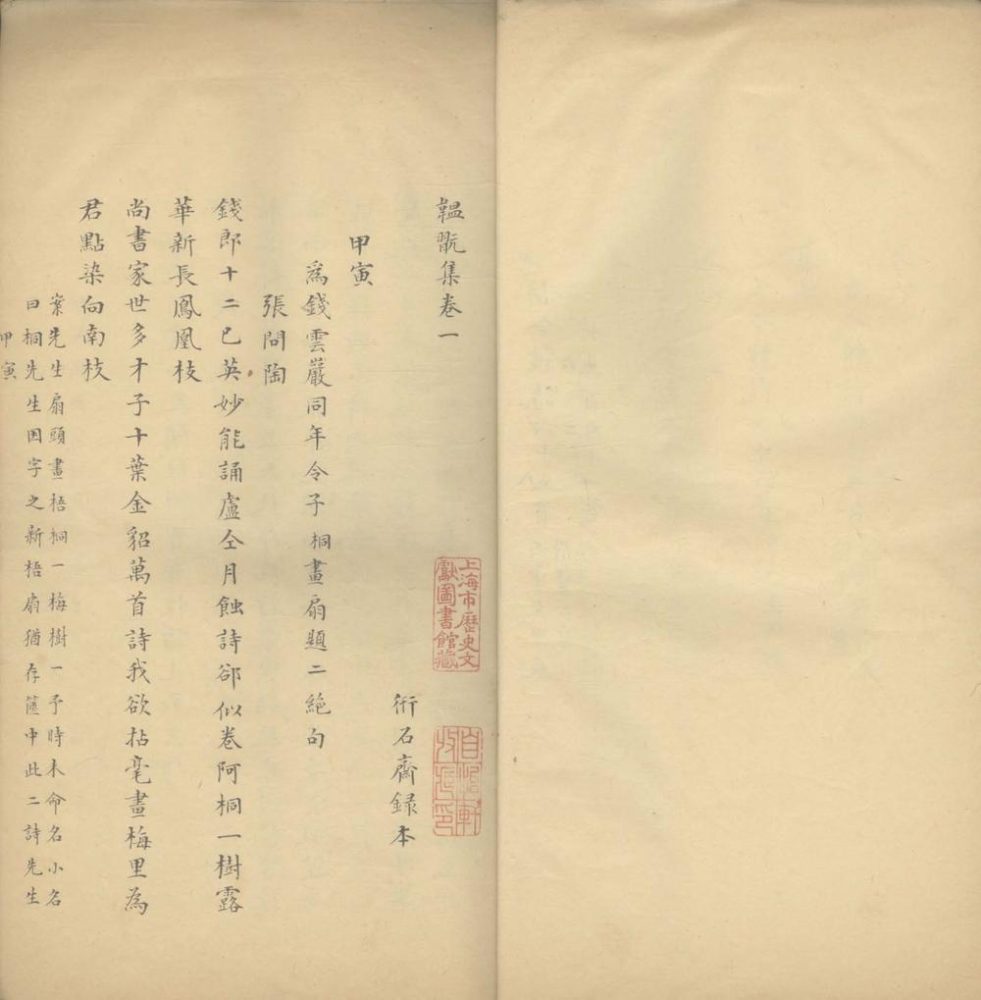 韞翫集卷一
衎石齋録本
甲寅
為錢雲巖同年令子桐畫扇題二絕句
張問陶
錢郎十二已英妙能誦盧仝月蝕詩郤似卷阿桐一樹露
華新長鳳凰枝
尚書家世多才子十葉金貂萬首詩我欲拈毫畫梅里為
君點染向南枝
案先生扇頭畫梧桐一梅樹一予時未命名小名
曰桐先生因字之新梧扇猶存篋中此二詩先生
甲寅
上海市歷史文
獻圖書館藏
自怡軒